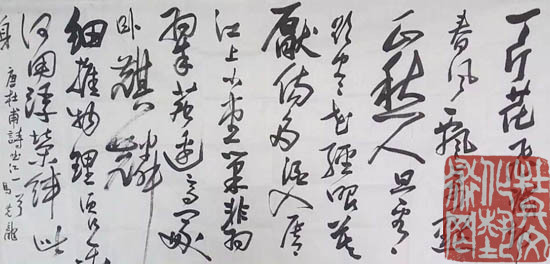 一片花飛減却
春风飄萬點
正愁人且看
欲尽花經眼莫
厭伤多酒入唇
江上小堂巢翡
翠苑边高冢
卧麒麟
細推物理須行樂
何用浮榮绊此
身 唐杜甫詩曲江一首